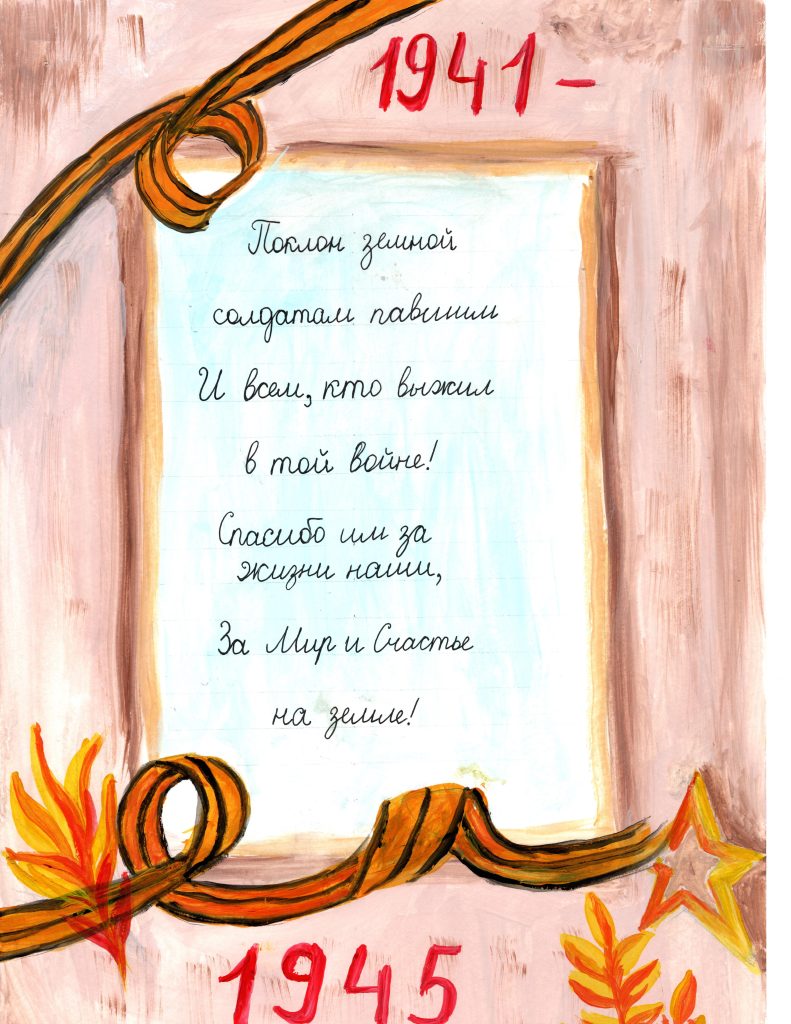 1941-
Поклон земной
солдатам павшим
И всем, кто выжил
в той войне!
Спасибо им за
жизни наши,
За Мир и Счастье
на земле!
1945